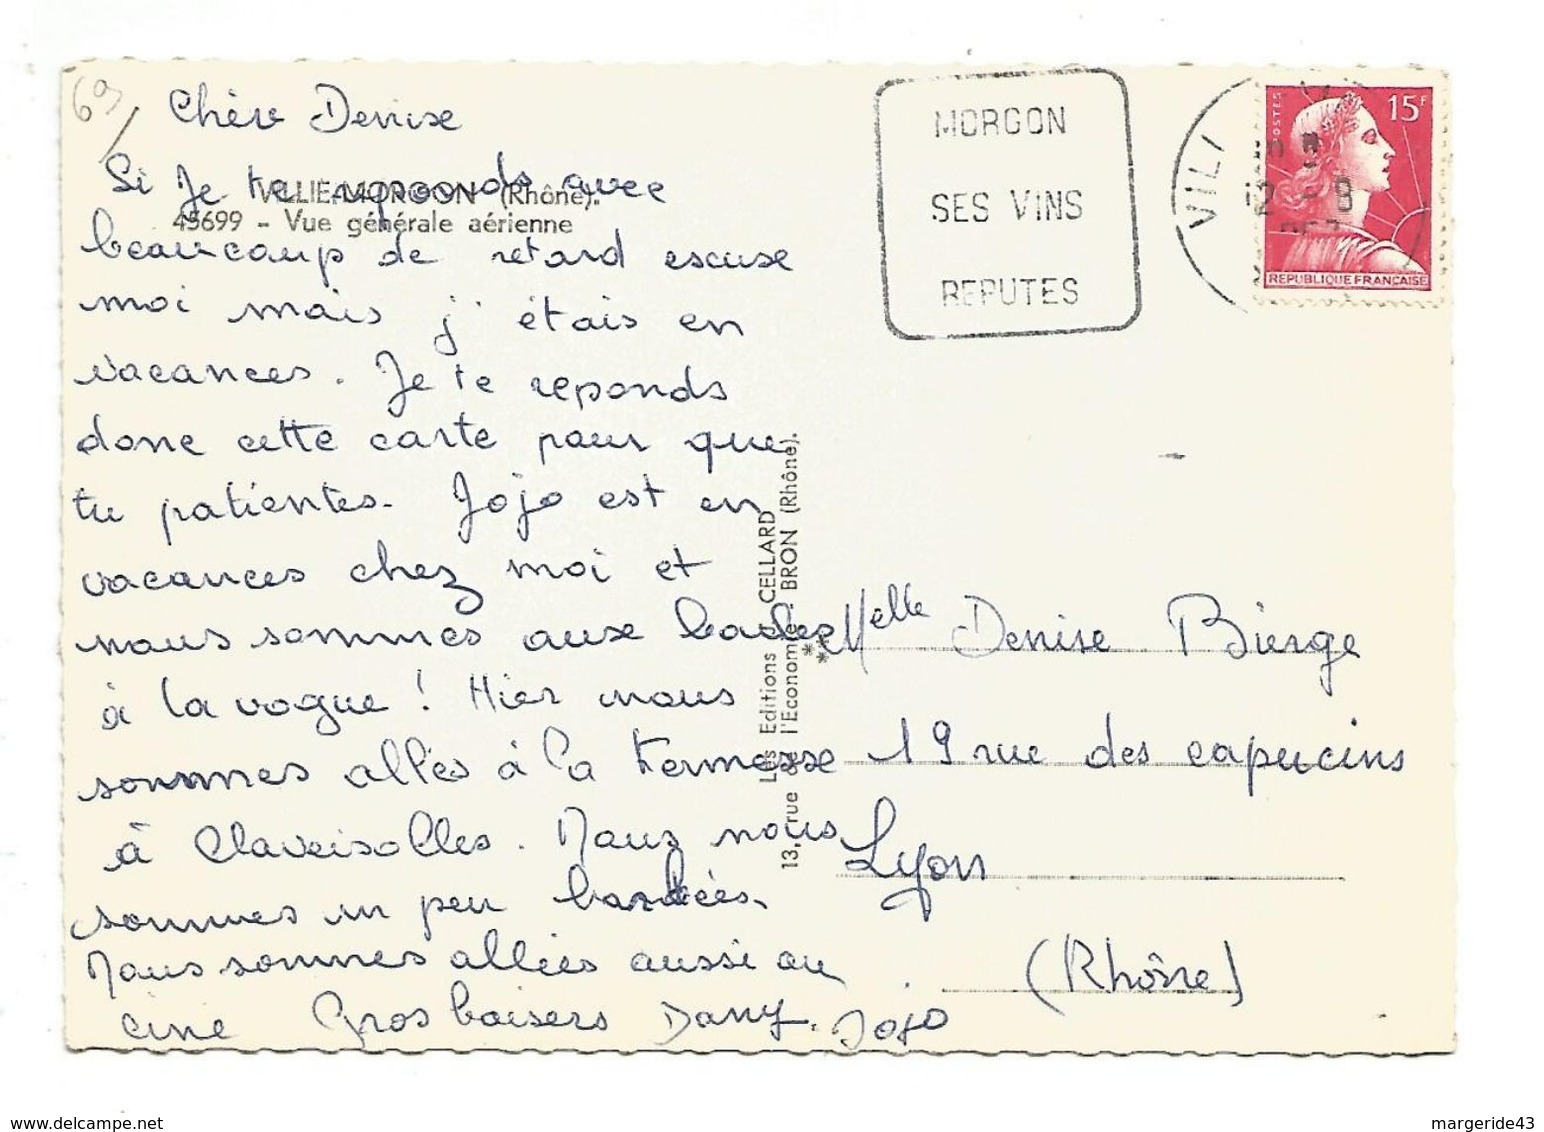 69/
Chère Denise
VILLIÉ-MORGON (Rhône).
45699 - Vue générale aérienne
Si Je te reponds avec
beaucoup de retard escuse
moi mais j'étais en
vacances. Je te reponds
donc cette carte pour que
tu patientes. Jojo est en
vacances chez moi et
nous sommes aux
à la vogue ! Hier nous
sommes allés à la Kermesse
à Claveisolles. Nous nous
sommes un peu
Nous sommes allées aussi au
ciné Gros baisers Dany. Jojo
LES Editions CELLARD
13, rue de l'Economie - BRON (Rhône).
MORGON
SES VINS
REPUTES
VILLI
12 - 8
POSTES
15F
REPUBLIQUE FRANÇAISE
Melle Denise Bierge
19 rue des capucins
Lyon
(Rhône)
www.delcampe.net
margeride43